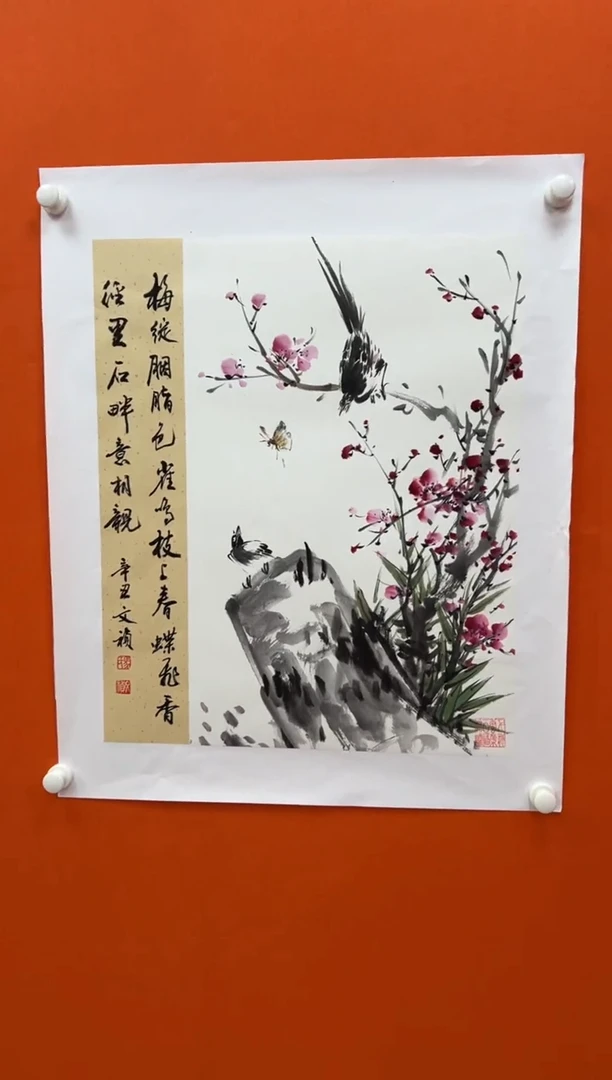 梅绽胭脂色雀鸣枝上春蝶飛香
徑里石畔意相親
辛丑文禎